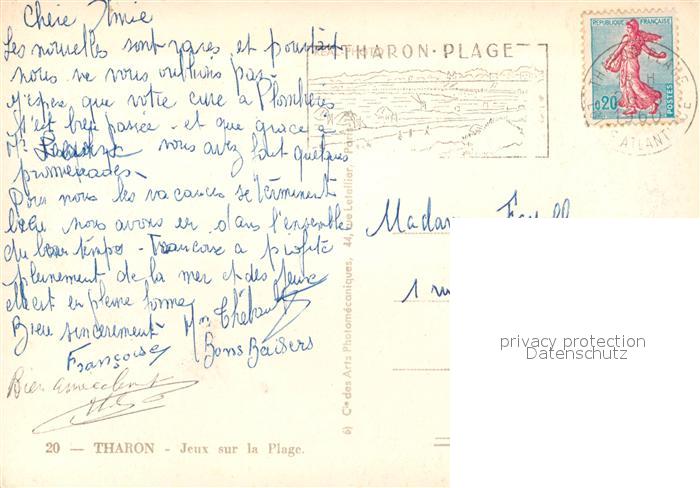 Chère Amie
Les nouvelles sont rares et pourtant
nous ne vous oublions pas
J'espère que votre cure à Plombières
s'est bien passée - et que grâce à
Mr vous avez fait quelques
promenades -
Pour nous les vacances se terminent
bien nous avons eu dans l'ensemble
du beau temps - Françoise a profité
pleinement de la mer et des jeux
elle est en pleine forme
Bien sincèrement Mme Thébault
Françoise Bons Baisers
Bien amicalement
20 — THARON - Jeux sur la Plage.
6) Cie des Arts Photomécaniques, 44, rue Letellier, Paris
THARON-PLAGE
REPUBLIQUE FRANÇAISE
0,20
POSTES
1960
ATLANTIQUE
Madame
1 rue
privacy protection
Datenschutz